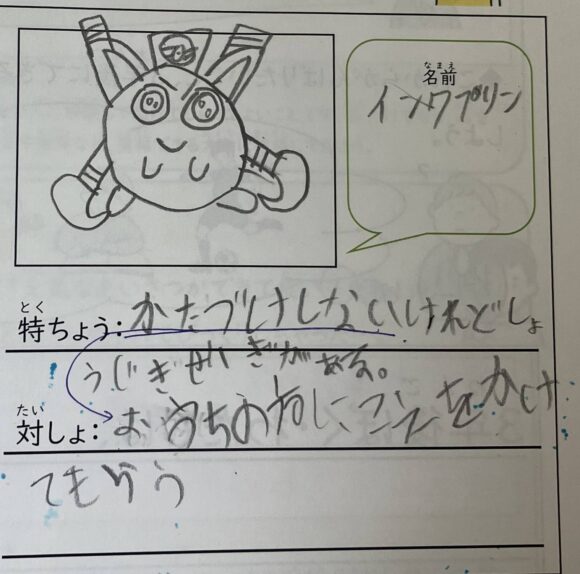 名前
なまえ
インクプリン
とく
特ちょう:かたづけしないけれどしょ
うじきせいぎがある。
たい
対しょ:おうちの方にこえをかけ
てもらう